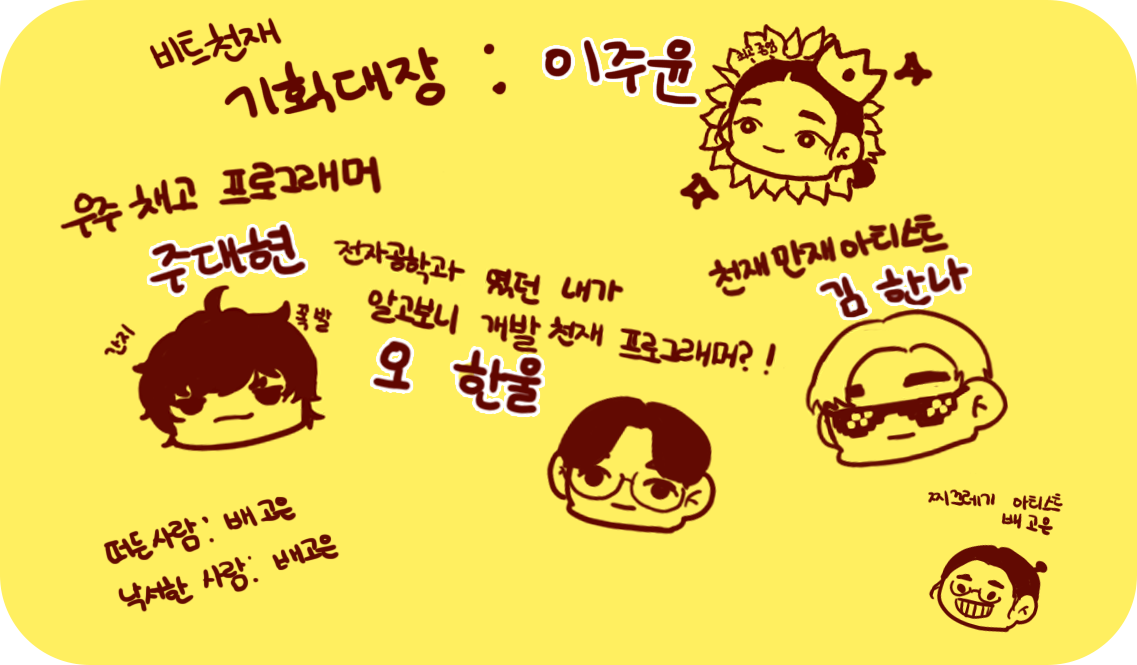 비트천재
기획대장 : 이주윤
최고존엄
우주 채고 프로그래머
주대현
간지
폭발
전자공학과 였던 내가
알고보니 개발 천재 프로그래머?!
오 한울
천재만재 아티스트
김 한나
떠든사람: 배고은
낙서한 사람: 배고은
찌끄레기 아티스트
배고은